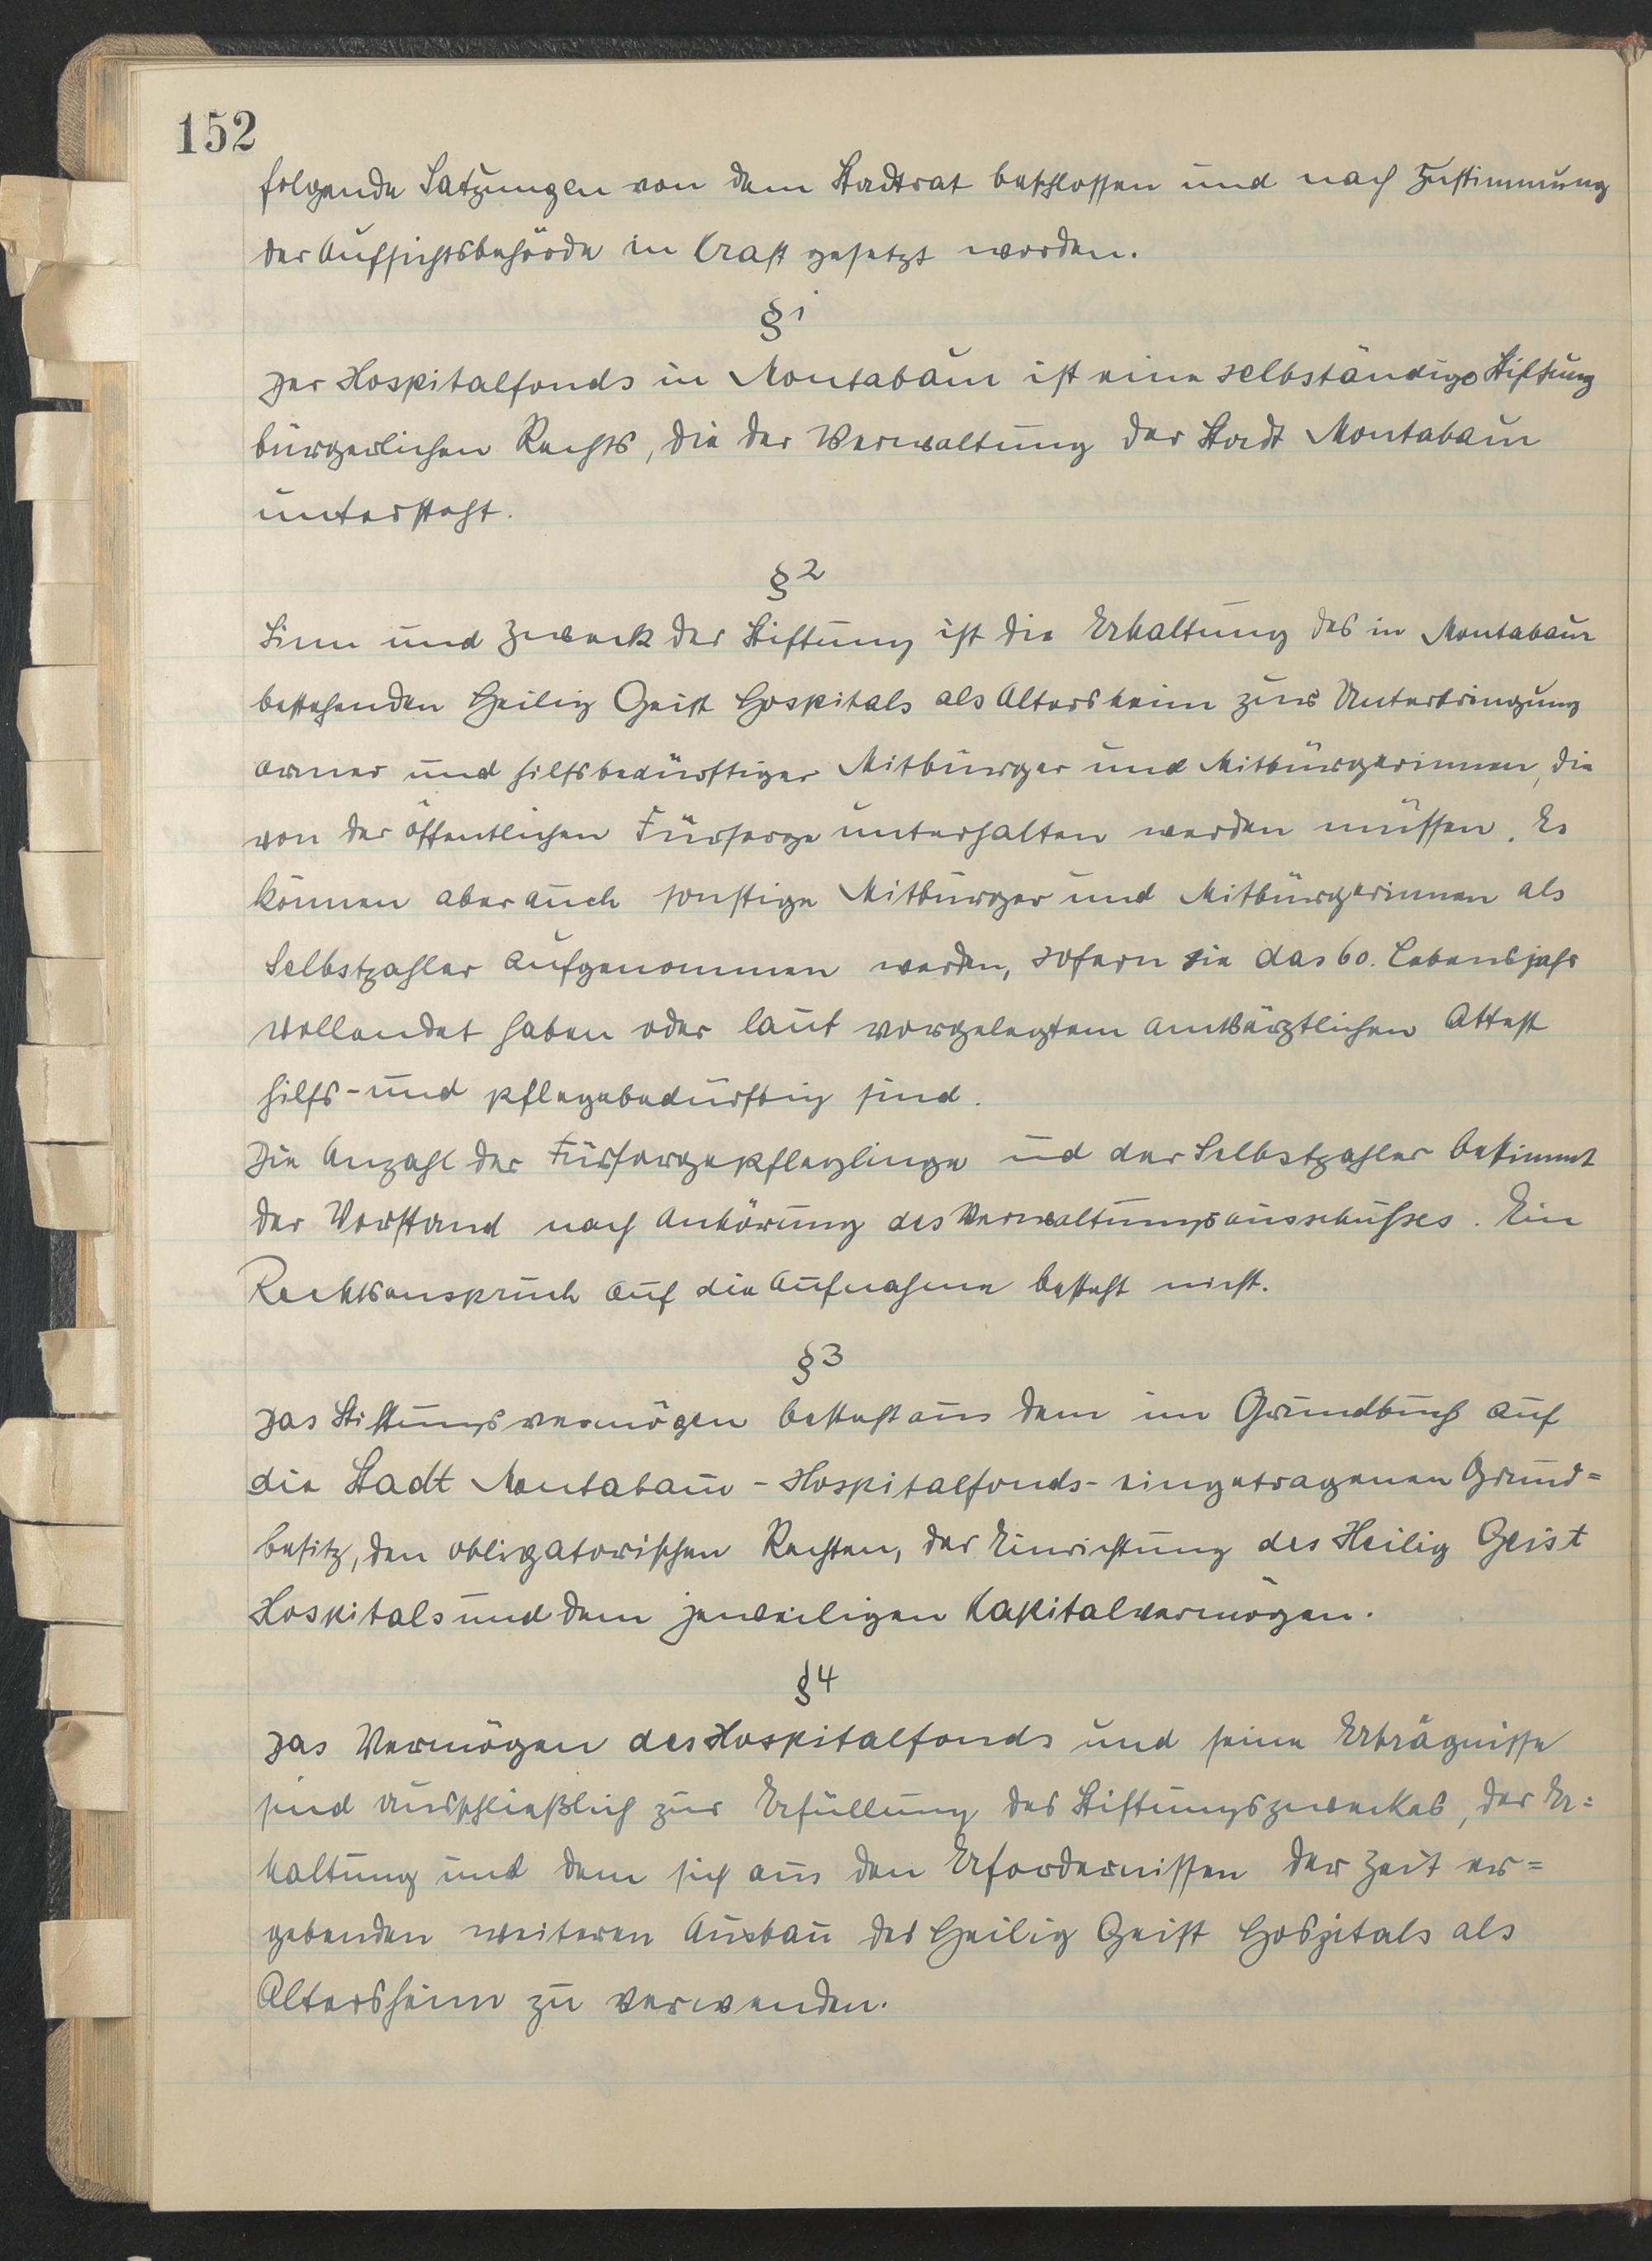 152
folgende Satzungen von dem Stadtrat beschlossen und nach Zustimmung
der Aufsichtsbehörde in Kraft gesetzt worden.
§ 1
Der Hospitalfonds in Montabaur ist eine selbständige Stiftung
bürgerlichen Rechts, die der Verwaltung der Stadt Montabaur
untersteht.
§ 2
Sinn und Zweck der Stiftung ist die Erhaltung des in Montabaur
bestehenden Heilig Geist Hospitals als Altersheim zur Unterbringung
armer und hilfsbedürftiger Mitbürger und Mitbürgerinnen, die
von der öffentlichen Fürsorge unterhalten werden müssen. Es
können aber auch sonstige Mitbürger und Mitbürgerinnen als
Selbstzahler aufgenommen werden, sofern sie das 60. Lebensjahr
vollendet haben oder laut vorgelegtem amtsärztlichen Attest
hilfs- und pflegebedürftig sind.
Die Anzahl der Fürsorgepfleglinge ud der Selbstzahler bestimmt
der Vorstand nach Anhörung des Verwaltungsausschußes. Ein
Rechtsanspruch auf die Aufnahme besteht nicht.
§ 3
Das Stiftungsvermögen besteht aus dem im Grundbuch auf
die Stadt Montabaur - Hospitalfonds - eingetragenen Grund=
besitz, den obligatorischen Rechten, der Einrichtung des Heilig Geist
Hospitals und dem jeweiligen Kapitalvermögen.
§ 4
Das Vermögen des Hospitalfonds und seine Erträgnisse
sind ausschließlich zur Erfüllung des Stiftungszweckes, der Er=
haltung und dem sich aus den Erfordernissen der Zeit er=
gebenden weiteren Ausbau des Heilig Geist Hospitals als
Altersheim zu verwenden.